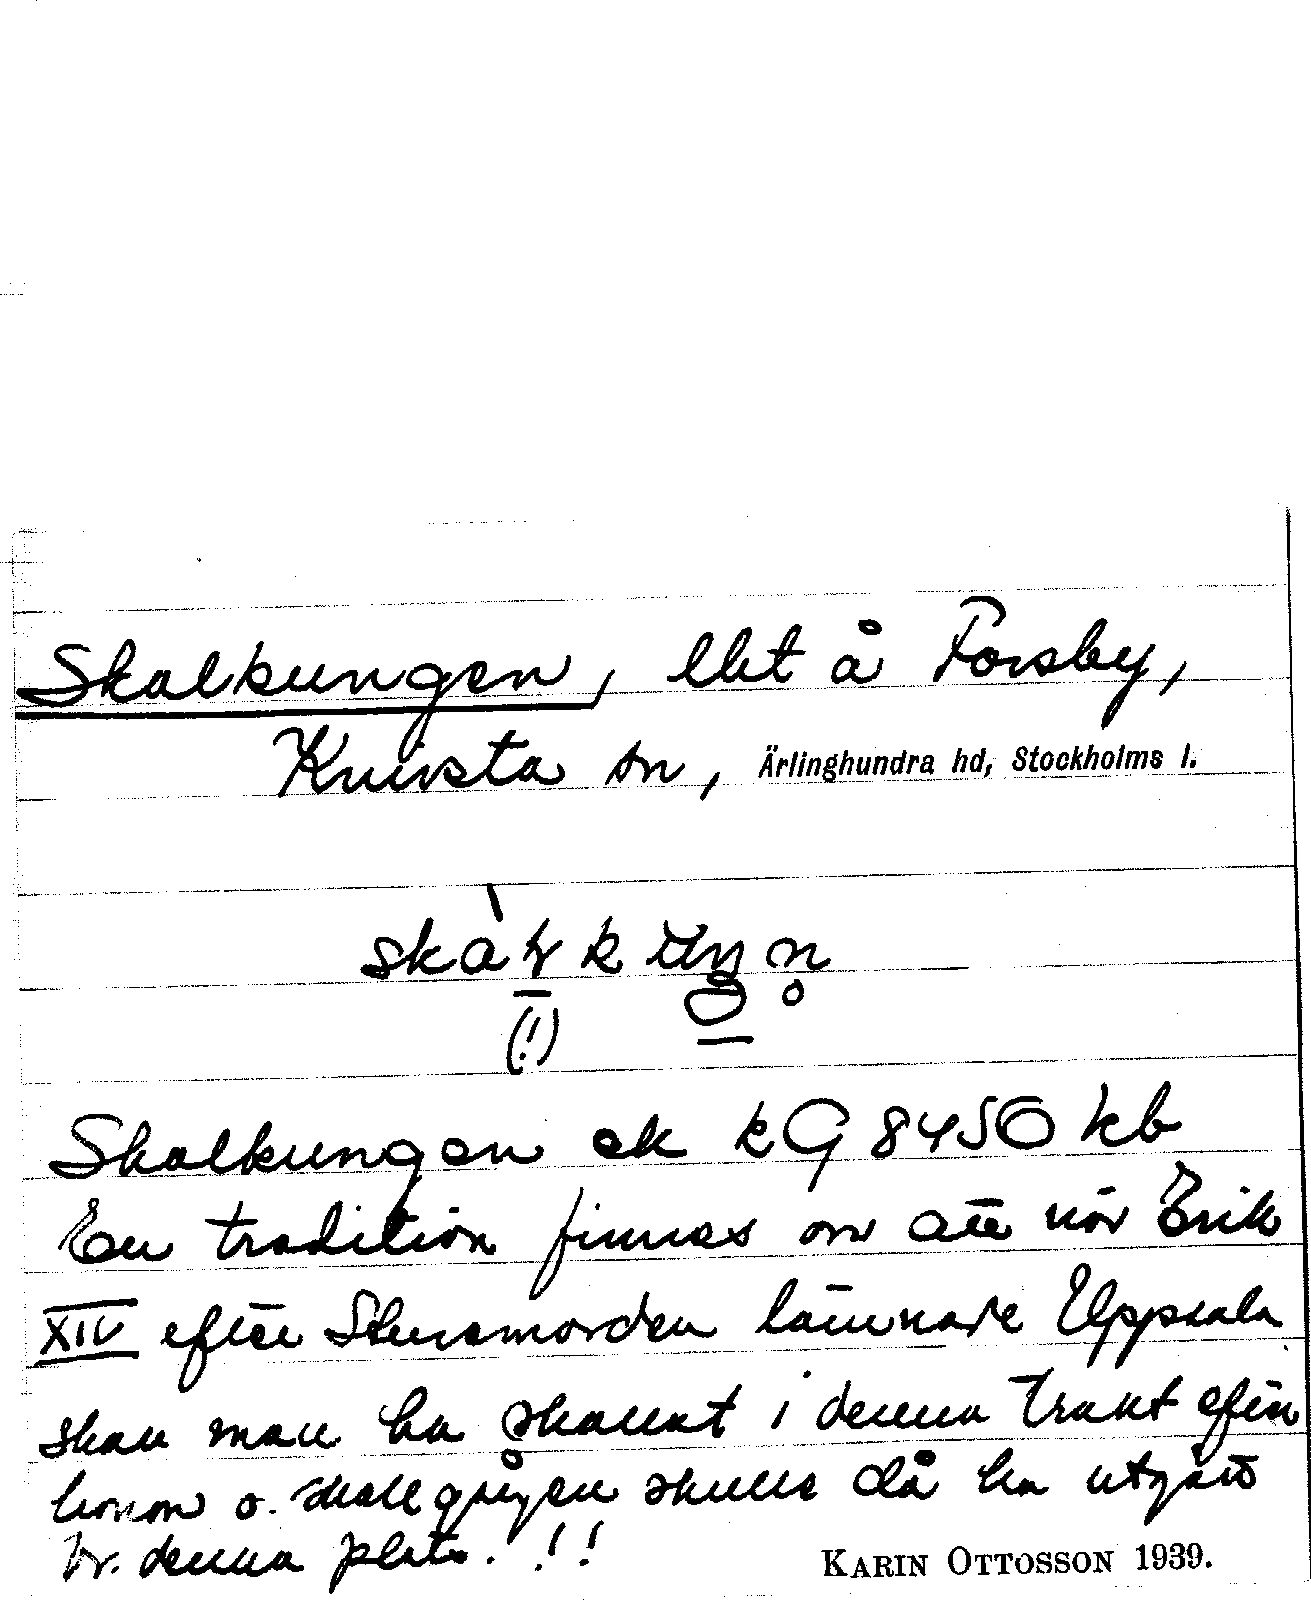 Skalkungen, lht å Forsby,
Knivsta sn, Ärlinghundra hd, Stockholms l.
(!)
Skalkungen ek kG 8450 kb
En tradition finnes om att när Erik
XIV efter Sturemorden lämnade Uppsala
skall man ha skallat i denna trakt efter
honom o. skallgången skulle då ha utgått
fr. denna plats. !!
KARIN OTTOSSON 1939.